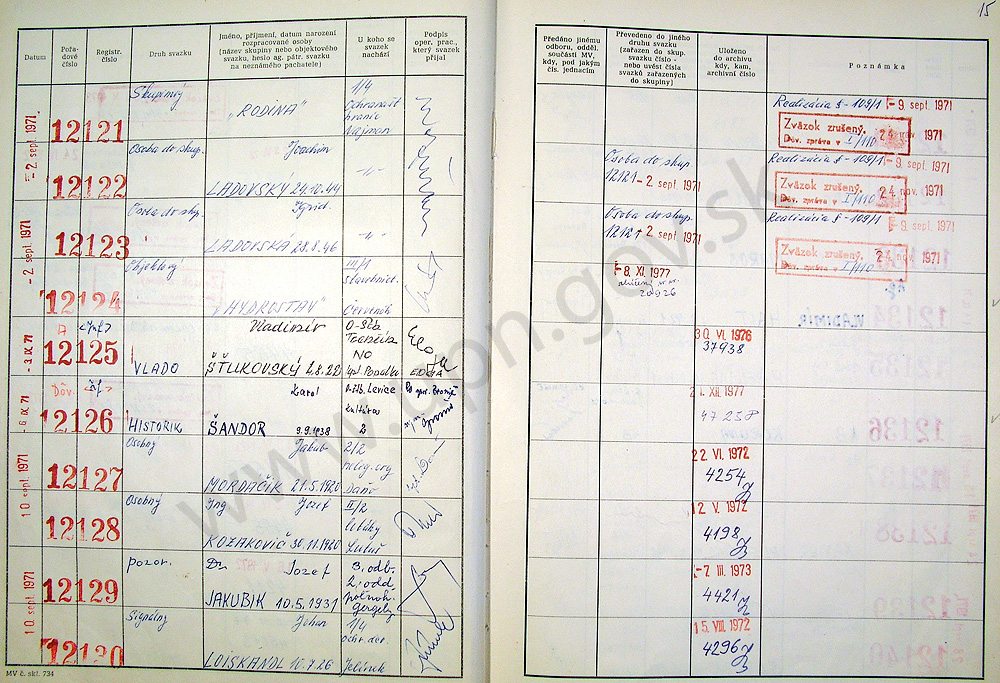 15
Datum
Pořadové číslo
Registr. číslo
Druh svazku
Jméno, příjmení, datum narození rozpracované osoby
(název skupiny nebo objektového svazku, heslo ag. pátr. svazku na neznámého pachatele)
U koho se svazek nachází
Podpis oper. prac., který svazek přijal
Předáno jinému odboru, odděl. součásti MV, kdy, pod jakým čís. jednacím
Převedeno do jiného druhu svazku (zařazen do skup. svazku číslo - nebo uvést čísla svazků zařazených do skupiny)
Uloženo do archivu kdy, kam, archivní číslo
Poznámka
-2. sept. 1971
12121
Skupinový
„RODINA"
1/4
Ochrana št hraníc
Najman
Realizácia §-109/1 -9. sept. 1971
Zväzok zrušený.
Dov. zpráva v I/110
24 nov. 1971
12122
Osoba do skup.
Joachim
LADOVSKÝ 24.10.44
-"-
Osoba do skup.
12121 -2. sept. 1971
Realizácia §-109/1 -9. sept. 1971
Zväzok zrušený.
Dov. zpráva v I/110
24 nov. 1971
-2. sept. 1971
12123
Osoba do skup.
Ingrid
LADOVSKÁ 28.8.46
-"-
Osoba do skup.
12121 -2 sept. 1971
Realizácia §-109/1 -9. sept. 1971
Zväzok zrušený.
Dov. zpráva v I/110
24 nov. 1971
12124
Objektový
„HYDROSTAV"
III/1
stavebníct.
Červenák
-8. XI. 1977
20926
-3. IX. 71
12125
VLADO
Vladimír
ŠŤLIKOVSKÝ 2.8.22
O-ŠtB
Trenčín
NO
30. VI. 1976
37938
-6. IX. 71
12126
Dôv.
HISTORIK
Karol
ŠANDOR 9.9.1938
O-ŠtB. Levice
kultúra
2
21. XII. 1977
47258
10. sept. 1971
12127
Osobný
Jakub
MORDAČIK 21.5.1920
2/2
relig. org
Daňo
22. VI. 1972
4254
12128
Osobný
Ing Jozef
KOZAKOVIČ 30.11.1920
II/2
Luluš
12. V. 1972
4198
10. sept. 1971
12129
pozor.
Dr. Jozef
JAKUBIK 10.5.1931
3. odb.
2. odd
poľnoh.
Gergely
-7. III. 1973
4421
12130
Signálny
Johan
LOISKANDL 10.7.26
1/4
Jelínek
15. VIII. 1972
4296
MV č. skl. 734
www.upn.gov.sk